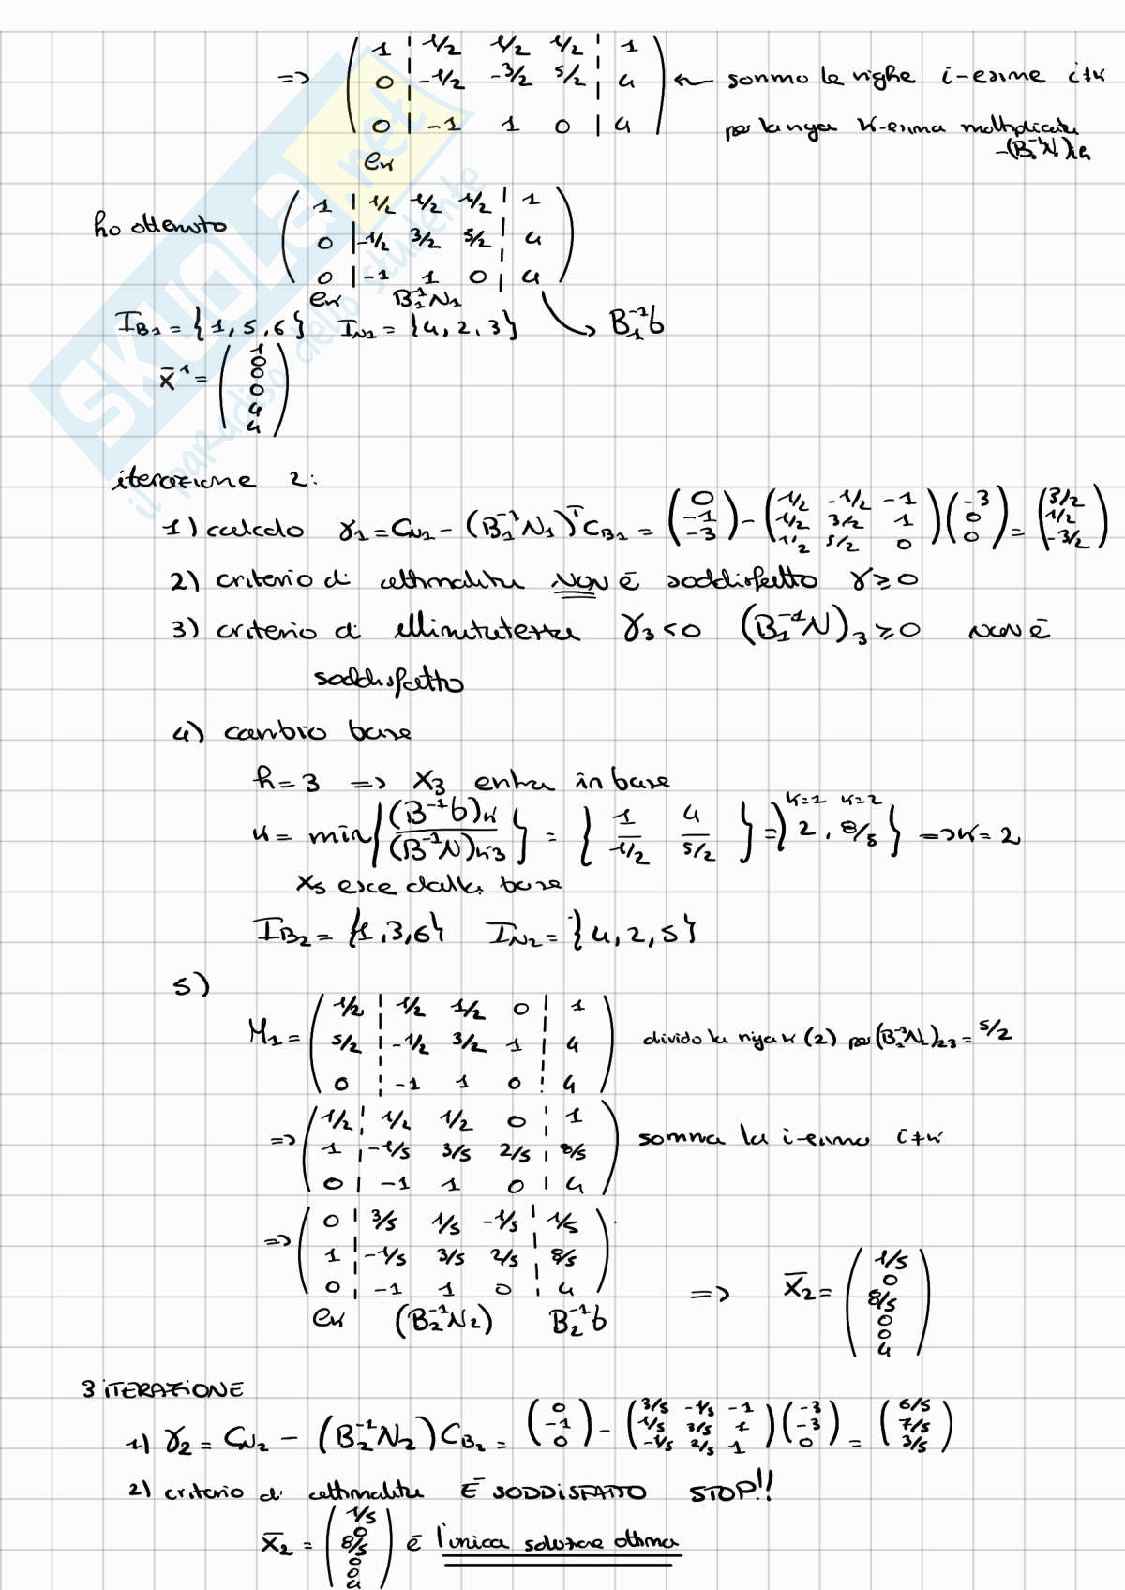 => ( 1 | 1/2 1/2 1/2 | 1 )
( 0 | -1/2 -3/2 5/2 | 4 ) ← sommo le righe i-esime i≠k
( 0 | -1 1 0 | 4 ) per la riga k-esima moltiplicata
-(B⁻¹N)ik
ek
ho ottenuto ( 1 | 1/2 1/2 1/2 | 1 )
( 0 | -1/2 3/2 5/2 | 4 )
( 0 | -1 1 0 | 4 )
ek B₁⁻¹N₁
I_B₁ = {1, 5, 6} I_N₁ = {4, 2, 3} → B₁⁻¹b
x̄¹ = ( 1 0 0 0 4 4 )
iterazione 2:
1) calcolo γ₁ = C_N₁ - (B₁⁻¹N₁)ᵀ C_B₁ = ( 0 -1 -3 ) - ( 1/2 -1/2 -1 ; 1/2 3/2 1 ; 1/2 5/2 0 ) ( -3 0 0 ) = ( 3/2 1/2 -3/2 )
2) criterio di ottimalità NON è soddisfatto γ ≥ 0
3) criterio di illimitatezza γ₃ < 0 (B₁⁻¹N)₃ ≥ 0 NON è
soddisfatto
4) cambio base
h = 3 => x₃ entra in base
k = min { (B⁻¹b)k / (B⁻¹N)k3 } = { 1 / 1/2 4 / 5/2 } = { k=1 2 , k=2 8/5 } => k = 2
x₅ esce dalla base
I_B₂ = {1, 3, 6} I_N₂ = {4, 2, 5}
5)
M₁ = ( 1/2 | 1/2 1/2 0 | 1 )
( 5/2 | -1/2 3/2 1 | 4 ) divido la riga k (2) per (B₂⁻¹N)₂₃ = 5/2
( 0 | -1 1 0 | 4 )
=> ( 1/2 | 1/2 1/2 0 | 1 )
( 1 | -1/5 3/5 2/5 | 8/5 ) somma la i-esima i≠k
( 0 | -1 1 0 | 4 )
=> ( 0 | 3/5 1/5 -1/5 | 1/5 )
( 1 | -1/5 3/5 2/5 | 8/5 )
( 0 | -1 1 0 | 4 )
ek (B₂⁻¹N₂) B₂⁻¹b
=> x̄₂ = ( 1/5 0 8/5 0 0 4 )
3 ITERAZIONE
1) γ₂ = C_N₂ - (B₂⁻¹N₂) C_B₂ = ( 0 -1 0 ) - ( 3/5 -1/5 -1 ; 1/5 3/5 1 ; -1/5 2/5 1 ) ( -3 -3 0 ) = ( 6/5 7/5 3/5 )
2) criterio di ottimalità È SODDISFATTO STOP!!
x̄₂ = ( 1/5 0 8/5 0 0 4 ) è l'unica soluzione ottima
SKUOLA.net
il paradiso dello studente